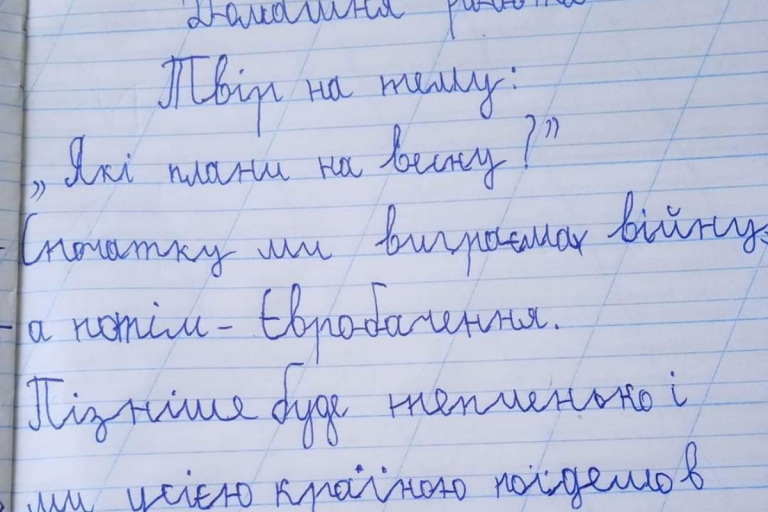 Домашня робота
Твір на тему:
„Які плани на весну?”
Спочатку ми виграємо війну,
а потім - Євробачення.
Пізніше буде тепленько і
ми усією країною поїдемо в